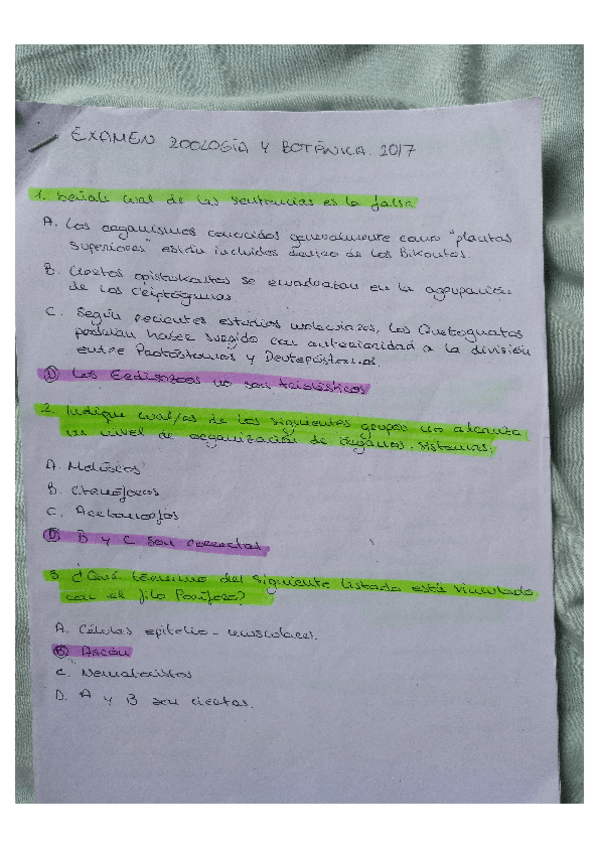 EXAMEN ZOOLOGÍA Y BOTÁNICA. 2017
1. Señale cual de las sentencias es la falsa
A. Los organismos conocidos generalmente como "plantas
superiores" están incluidos dentro de los Bikontos.
B. Ciertos opistokontos se encuadran en la agrupación
de los Criptógamas.
C. Según recientes estudios moleculares, los Quetognatos
podrían haber surgido con anterioridad a la división
entre Protóstomos y Deuteróstomos.
D) Los Ecdisozoos no son triblásticos
2. Indique cual/es de los siguientes grupos no alcanza
un nivel de organización de órganos-sistemas.
A. Moluscos
B. Ctenóforos
C. Acelomorfos
D) B y C son correctas.
3. ¿Qué término del siguiente listado está vinculado
con el filo Porífera?
A. Células epitelio-musculares.
B) Ascon
C. Nematocistos
D. A y B son ciertas.